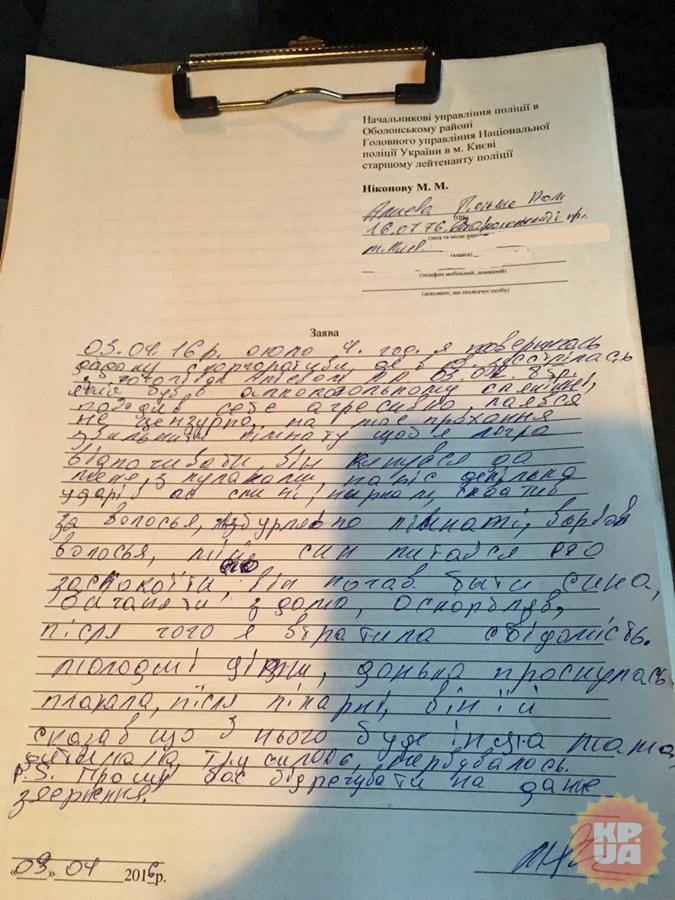 Начальникові управління поліції в
Оболонському районі
Головного управління Національної
поліції України в м. Києві
старшому лейтенанту поліції
Ніконову М. М.
Алиева
16.07.76 пр.
(дата та місце
(адреса)
(телефон мобільний, домашній)
(документ, що посвідчує особу)
Заява
03.04.16р. около 4. год. я повернулась
додому з корпоративу, де я зустрілась
з
який був в алкогольному
поводив себе агресивно, лаявся
не цензурно, на моє прохання
звільнити кімнату щоб я могла
відпочивати він кинувся до
мене, з кулаками, наніс декілька
ударів по спині, ниркам, схватив
за волосья, по кімнаті,
волосья, син питався его
заспокоїти, він почав быти сина,
виганяти з дома, оскорбляв,
після чого я втратила свідомість.
молодші діти, донька проснулась
плакала, після лікарні, він їй
сказав що з нього буде інша мама,
дитина на
P.S. Прошу вас відрегувати на дане
звернення.
"03" 04 2016р.
KP.
UA